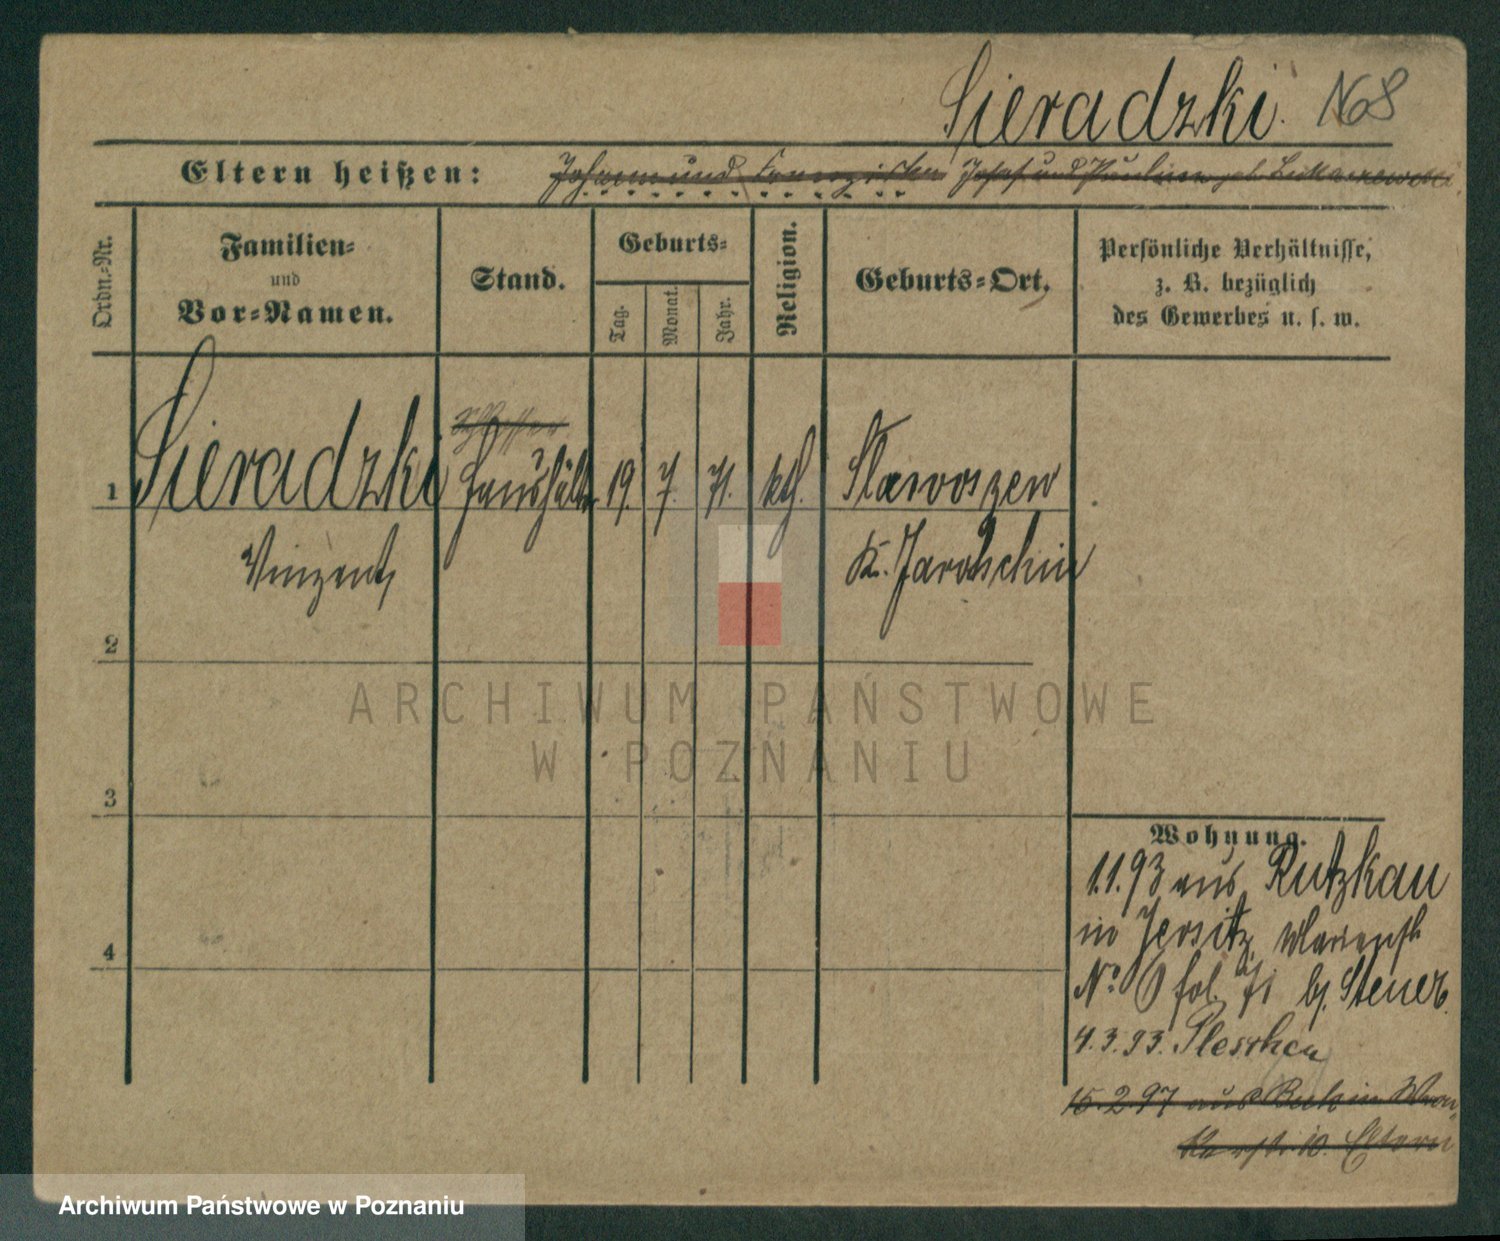 Sieradzki. No 8
Eltern heißen: Johann und Franziska Josef und Paulina geb.
Ordn.-Nr.
Familien-
und
Vor-Namen.
Stand.
Geburts-
Tag.
Monat.
Jahr.
Religion.
Geburts-Ort.
Persönliche Verhältnisse,
z. B. bezüglich
des Gewerbes u. s. w.
Schlosser
1 Sieradzki Haushält. 19. 7. 71. kth. Slawoszew
Vinzent K. Jarotschin
2
3
4
Wohnung.
1.1.93 aus Rutzkau
in Jersitz, Marienstr
No 6 fol. 71 bj. Steuer.
4.3.93. Pleschen
15.2.97 aus Buk in
10. Eltern
ARCHIWUM PAŃSTWOWE
W POZNANIU
Archiwum Państwowe w Poznaniu